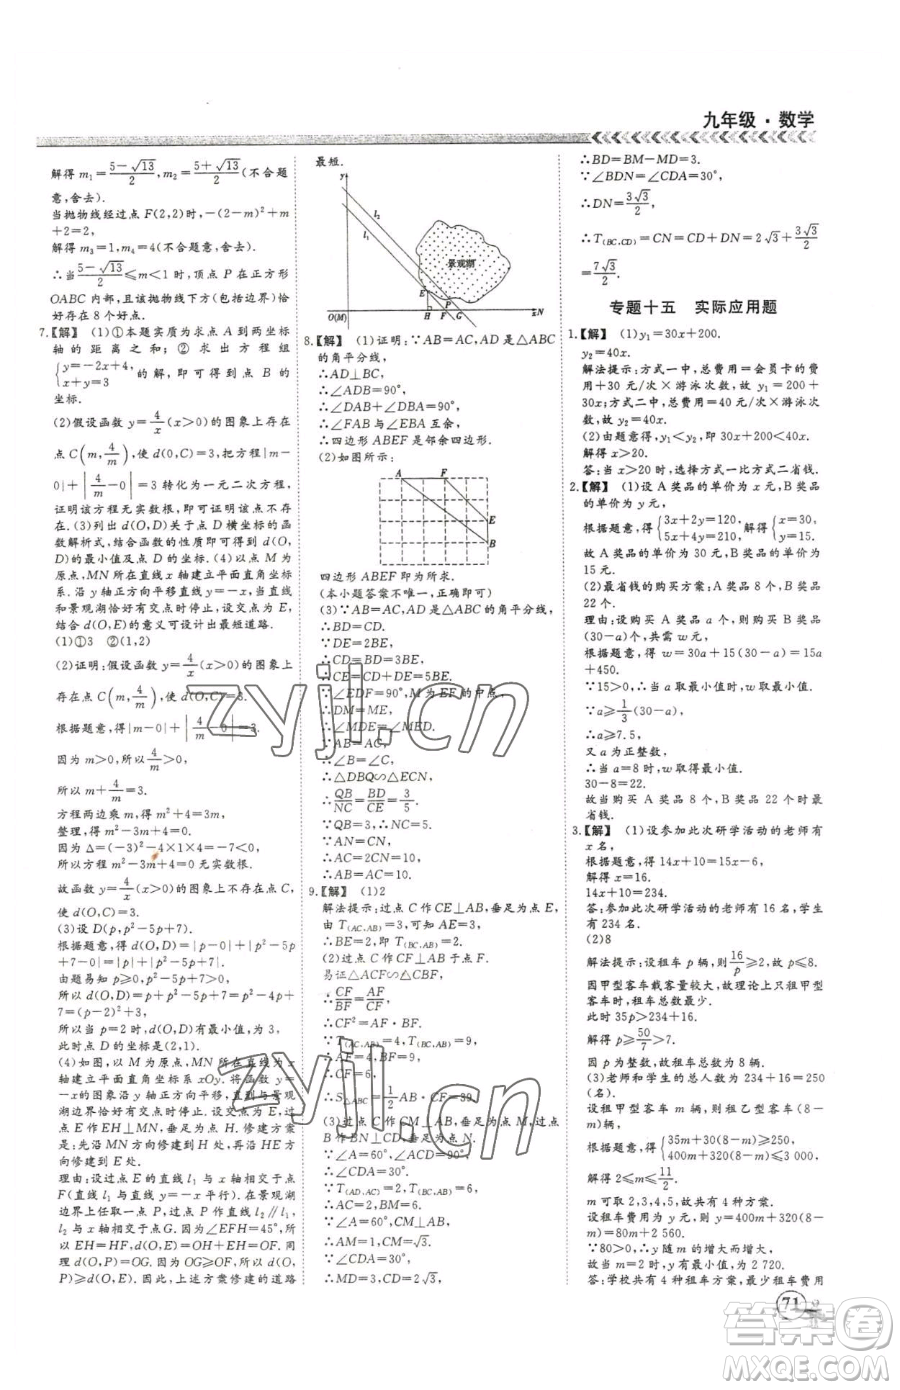 九年级·数学
解得 m₁=(5-√13)/2, m₂=(5+√13)/2(不合题
意,舍去).
当抛物线经过点 F(2,2)时,-(2-m)²+m
+2=2,
解得 m₃=1,m₄=4(不合题意,舍去).
∴当(5-√13)/2≤m<1 时,顶点 P 在正方形
OABC 内部,且抛物线下方(包括边界)恰
好存在 8 个好点.
7.【解】 (1)①本题实质为求点 A 到两坐标
轴的距离之和;②求出方程组
{y=-2x+4,
x+y=3 的解,即可得到点 B 的
坐标.
(2)假设函数 y=4/x(x>0)的图象上存在
点 C(m,4/m),由 d(O,C)=3,得到|m-
0|+|4/m-0|=3 转化为一元二次方程,
证明该方程无实数根,即可得该点不存
在.(3)列出 d(O,D)关于点 D 横坐标的函
数解析式,由函数的性质即可得出 d(O,
D)的最小值及点 D 的坐标.(4)以点 M 为
原点,MN所在直线x轴建立平面直角坐标
系.沿 y 轴正方向平移直线y=-x,直到
和景观湖边界有交点时停止,设交点为 E,
结合 d(O,E)的意义可设计出最短道路.
(1)①3 ②(1,2)
(2)证明:假设函数 y=4/x(x>0)的图象上
存在点 C(m,4/m),使 d(O,C)=3.
根据题意,得|m-0|+|4/m-0|=3.
因为 m>0,所以 4/m>0,
所以 m+4/m=3.
方程两边乘 m,得 m²+4=3m.
整理,得 m²-3m+4=0.
因为 Δ=(-3)²-4×1×4=-7<0,
所以方程 m²-3m+4=0 无实数根.
故函数 y=4/x(x>0)的图象上不存在点 C,
使 d(O,C)=3.
(3)设 D(p,p²-5p+7).
根据题意,得 d(O,D)=|p-0|+|p²-5p
+7-0|=|p|+|p²-5p+7|.
由题易知 p≥0,p²-5p+7>0,
所以 d(O,D)=p+p²-5p+7=p²-4p
+7=(p-2)²+3,
所以当 p=2 时,d(O,D)有最小值 3,
此时点 D 的坐标为(2,1).
(4)如图,以 M 为原点,MN 所在直线为 x
轴建立平面直角坐标系 xOy.
将函数 y=-x 的图象沿 y 轴正方向平移,直到与景观
湖边界有交点时停止,设交点为 E,过点
E 作 EH⊥MN,垂足为 H.修建方案
是:先沿 MN 方向修建到 H 处,再沿 HE
方向修建到 E 处.
理由:设过点 E 的直线 l₁ 与 x 轴相交于点
F(直线 l₁ 与直线 y=-x 平行).在景观湖
边界上任取一点 P,过点 P 作直线 l₂∥l₁,
l₂ 与 x 轴相交于点 G.因为∠EFH=45°,所
以 EH=HF,d(O,E)=OF,
同理 d(O,P)=OG.因为OG≥OF,所以 d(O,
P)≥d(O,E).因此,上述方案修建的道路
最短.
y
l₂
l₁
景观湖
E
P
O(M)
H F G
N x
8.【解】 (1)证明:∵AB=AC,AD是△ABC
的角平分线,
∴AD⊥BC,
∴∠ADB=90°,
∴∠DAB+∠DBA=90°,
∴∠FAB 与∠EBA 互余,
∴四边形 ABEF 是邻余四边形.
(2)如图所示:
A F
E
B
四边形 ABEF 即为所求.
(本小题答案不唯一,正确即可)
(3)∵AB=AC,AD 是△ABC 的角平分线,
∴BD=CD.
∵DE=2BE,
∴CD=BD=3BE,
∴CE=CD+DE=5BE.
∵∠EDF=90°,M 为 EF 的中点,
∴DM=ME,
∴∠MDE=∠MED.
∵AB=AC,
∴∠B=∠C,
∴△DBQ∽△ECN,
∴QB/NC=BD/CE=3/5.
∵QB=3,∴NC=5.
∵AN=CN,
∴AC=2CN=10,
∴AB=AC=10.
9.【解】 (1)2
解法提示:过点 C 作 CE⊥AB,垂足为点 E,
由 T(AC,AB)=3,可知 AE=3,
∴BE=2,即 T(BC,AB)=2.
(2)过点 C 作 CF⊥AB 于点 F.
易证△ACF∽△CBF,
∴CF/BF=AF/CF,
∴CF²=AF·BF.
∵T(AC,AB)=4,T(BC,AB)=9,
∴AF=4,BF=9,
∴CF=6,
∴S△ABC=1/2 AB·CF=39.
(3)过点 C 作 CM⊥AB,垂足为点 M,过点
B 作 BN⊥CD,垂足为点 N.
∵∠A=60°,∠ACD=90°,
∴∠CDA=30°.
∵T(AD,AC)=2,T(BC,AB)=6,
∴AC=2,BM=6.
∵∠A=60°,CM⊥AB,
∴AM=1,CM=√3.
∵∠CDA=30°,
∴MD=3,CD=2√3,
∴BD=BM-MD=3.
∵∠BDN=∠CDA=30°,
∴DN=3√3/2,
∴T(BC,CD)=CN=CD+DN=2√3+3√3/2
=7√3/2.
专题十五 实际应用题
1.【解】 (1)y₁=30x+200.
y₂=40x.
解法提示:方式一中,总费用=会员卡的费
用+30 元/次×游泳次数,故 y₁=200+
30x;方式二中,总费用=40 元/次×游泳
次数,故 y₂=40x.
(2)由题意,得 y₁<y₂,即 30x+200<40x,
解得 x>20.
答:当 x>20 时,选择方式一比方式二省钱.
2.【解】 (1)设 A 奖品的单价为 x 元,B 奖品
的单价为 y 元,
根据题意,得{3x+2y=120,5x+4y=210,解得{x=30,y=15.
故 A 奖品的单价为 30 元,B 奖品的单价为
15 元.
(2)最省钱的购买方案:A 奖品 8 个,B 奖品
22 个.
理由:设购买 A 奖品 a 个,则购买 B 奖品
(30-a)个,共需 w 元,
根据题意,得 w=30a+15(30-a)=15a
+450.
∵15>0,∴当 a 取最小值时,w 有最小值.
∵a≥1/3(30-a),
∴a≥7.5,
又 a 为正整数,
∴当 a=8 时,w 有最小值.
30-8=22.
故当购买 A 奖品 8 个,B 奖品 22 个时最
省钱.
3.【解】 (1)设参加此次研学活动的老师有
x 名,
根据题意,得 14x+10=15x-6,
解得 x=16.
14x+10=234.
答:参加此次研学活动的老师有 16 名,学
生有 234 名.
(2)8
解法提示:设租车 p 辆,则16/p≥2,故 p≤8.
因甲型客车载客量较大,故理论上只租甲型
客车时,租车总数最小.
此时 35p≥234+16,
解得 p≥50/7>7.
因 p 为整数,故租车总数为 8 辆.
(3)老师和学生的总人数为 234+16=250
(名).
设租甲型客车 m 辆,则租乙型客车(8-
m)辆,
根据题意,得{35m+30(8-m)≥250,400m+320(8-m)≤3 000,
解得 2≤m≤11/2.
m 可取 2,3,4,5,故共有 4 种方案.
设租车费用为 y 元,则 y=400m+320(8-
m)=80m+2 560.
∵80>0,∴y 随 m 的增大而增大,
∴当 m=2 时,y 有最小值,为 2 720.
答:学校共有 4 种租车方案,最少租车费用
71
zyjl.cn
zyjl.cn
答案圈
MXQE.COM